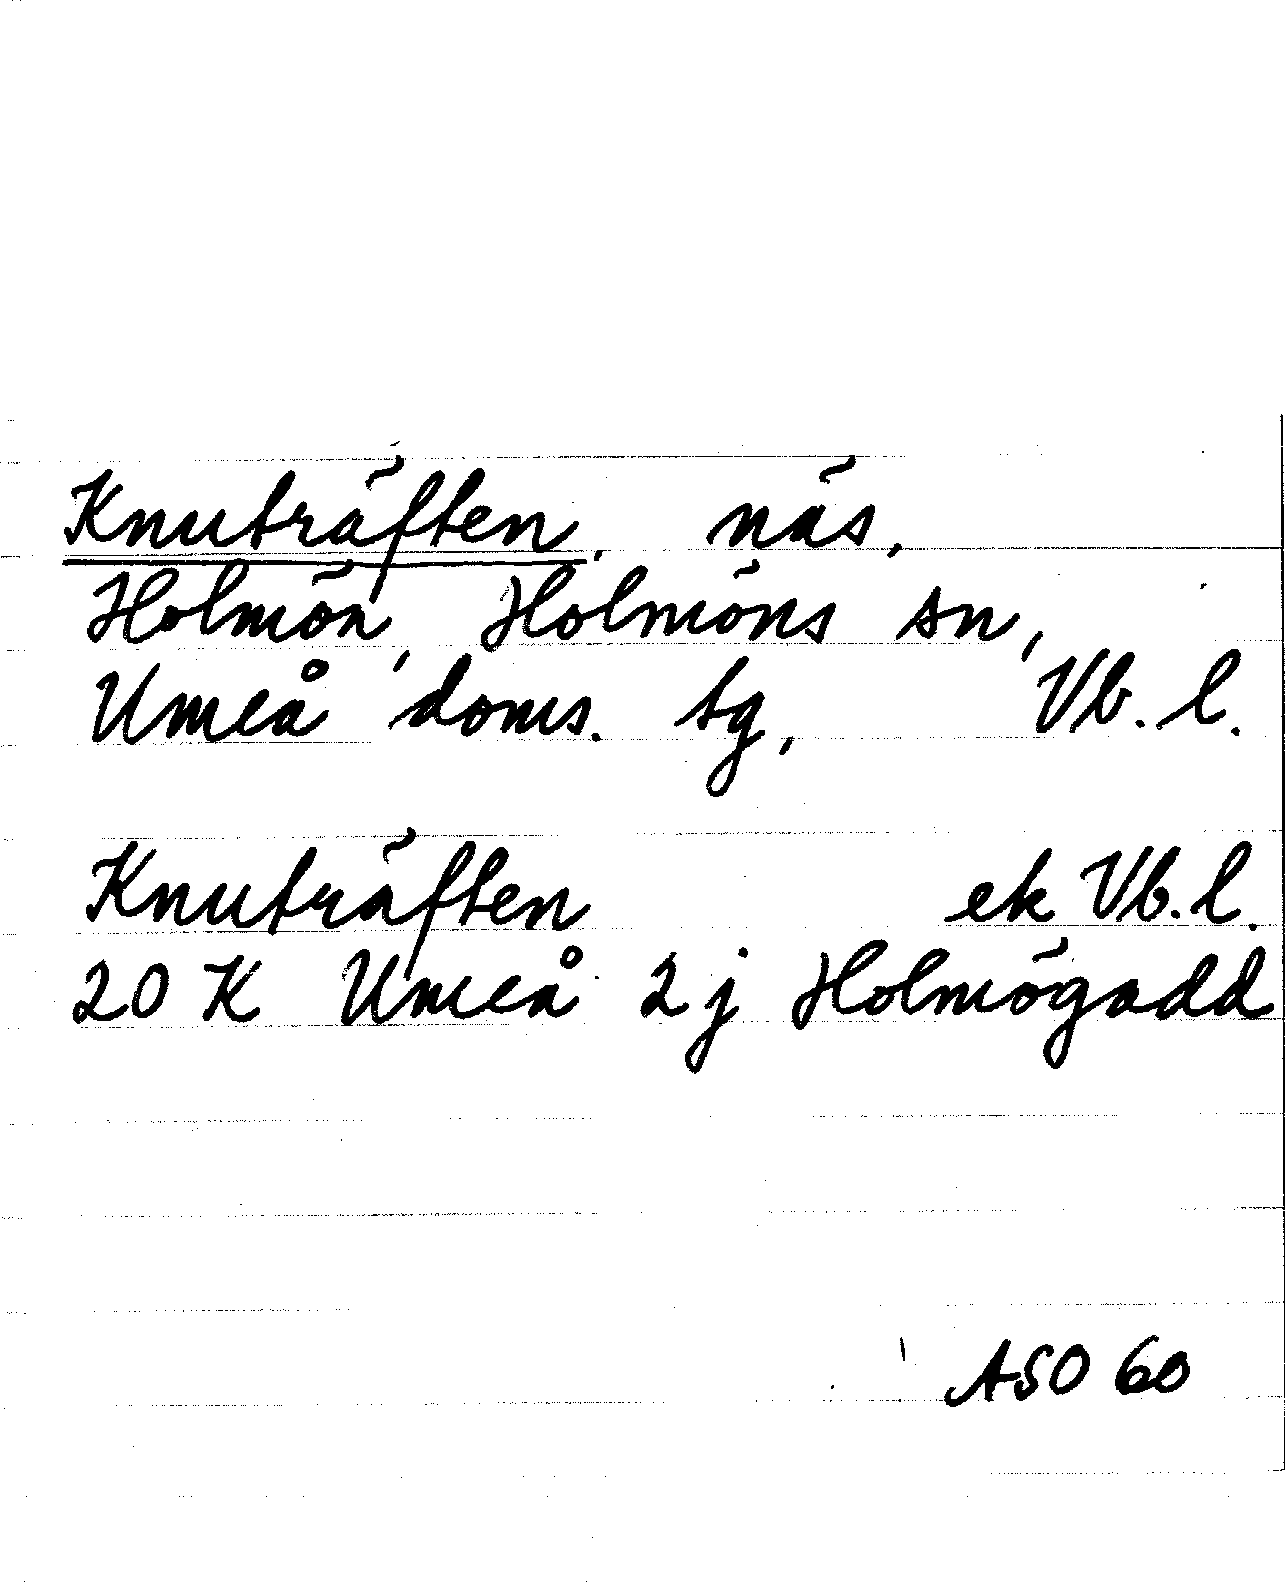 Knuträften, näs,
Holmön, Holmöns sn,
Umeå doms. tg, Vb. l.
Knuträften ek Vb. l.
20 K Umeå 2 j Holmögadd
ASO 60